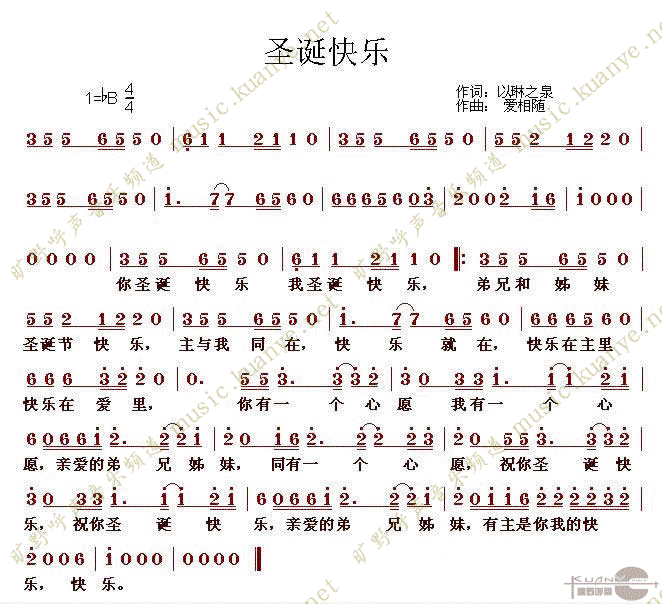 圣诞快乐
1=♭B 4/4
作词：以琳之泉
作曲： 爱相随
3 5 5 6 5 5 0 | 6 1 1 2 1 1 0 | 3 5 5 6 5 5 0 | 5 5 2 1 2 2 0 |
3 5 5 6 5 5 0 | 1. 7 7 6 5 5 0 | 6 6 6 5 6 0 3 | 2 0 0 2 1 6 | 1 0 0 0 |
0 0 0 0 | 3 5 5 6 5 5 0 | 6 1 1 2 1 1 2 0 |: 3 5 5 6 5 5 0 |
你圣诞 快 乐 我圣诞 快 乐， 弟兄和 姊 妹
5 5 2 1 2 2 0 | 3 5 5 6 5 5 0 | 1. 7 7 6 5 5 0 | 6 6 6 5 6 6 |
圣诞节 快 乐， 主与我 同 在， 快 乐 就 在， 快乐在主里
6 6 6 3 2 2 0 | 0. 5 5 3. 3 3 2 | 2. 5 5 1. 1 1 2 |
快乐在 爱 里， 你有一 个 心 愿 我有一 个 心
6 0 6 6 1 2. 2 2 2 | 2 0 1 6 2. 2 2 2 3 | 2 0 5 5 3. 3 3 2 |
愿，亲爱的弟 兄 姊妹，同有一 个 心 愿，祝你圣 诞 快
3 0 3 3 1. 1 1 2 | 1 0 6 6 1 2. 2 2 2 | 2 0 2 1 2 2 2 2 3 2 |
乐，祝你圣 诞 快 乐，亲爱的弟 兄 姊妹，有主是你我的快
2 0 0 6 | 1 0 0 0 | 0 0 0 0 ‖
乐， 快 乐。
旷野呼声音乐频道 music.kuanye.net
KUANYE
旷野呼声